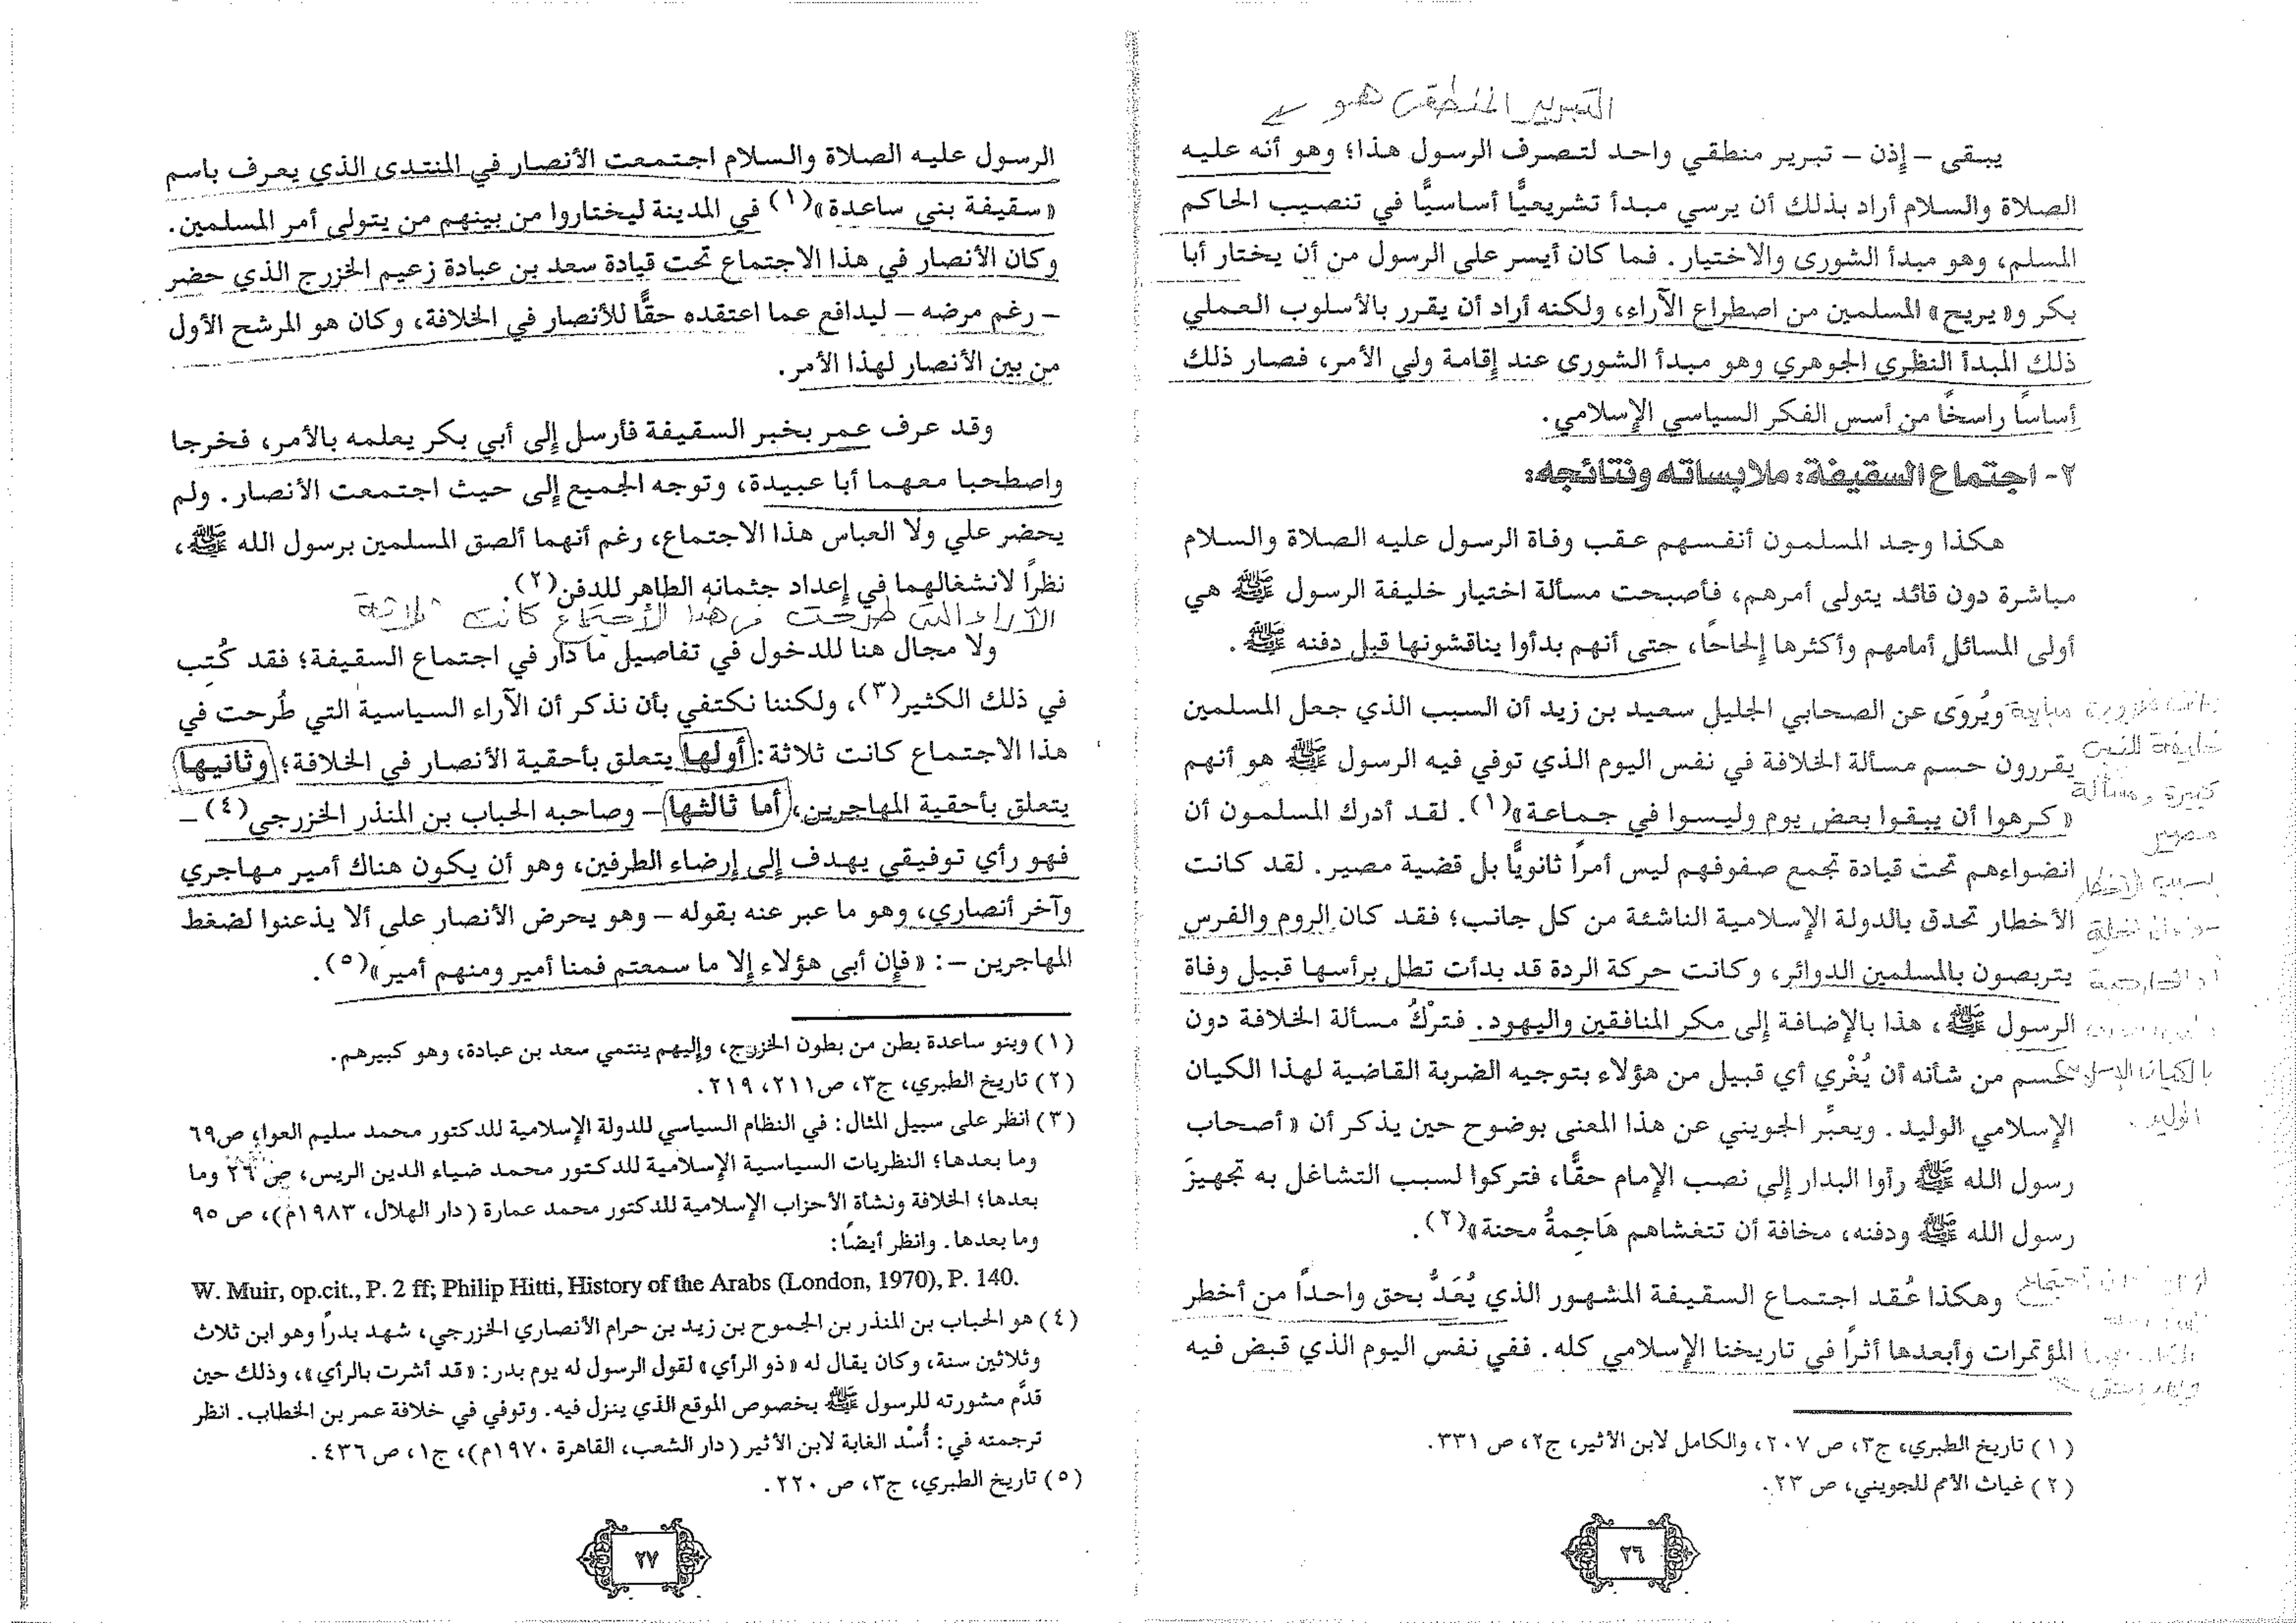 التبرير المنطقي هو
يبقى – إذن – تبرير منطقي واحد لتصرف الرسول هذا؛ وهو أنه عليه
الصلاة والسلام أراد بذلك أن يرسي مبدأ تشريعيًّا أساسيًّا في تنصيب الحاكم
المسلم، وهو مبدأ الشورى والاختيار. فما كان أيسر على الرسول من أن يختار أبا
بكر و«يريح» المسلمين من اصطراع الآراء، ولكنه أراد أن يقرر بالأسلوب العملي
ذلك المبدأ النظري الجوهري وهو مبدأ الشورى عند إقامة ولي الأمر، فصار ذلك
أساسًا راسخًا من أسس الفكر السياسي الإسلامي.
٢- اجتماع السقيفة: ملابساته ونتائجه:
هكذا وجد المسلمون أنفسهم عقب وفاة الرسول عليه الصلاة والسلام
مباشرة دون قائد يتولى أمرهم، فأصبحت مسألة اختيار خليفة الرسول ﷺ هي
أولى المسائل أمامهم وأكثرها إلحاحًا، حتى أنهم بدأوا يناقشونها قبل دفنه ﷺ.
ويُروَى عن الصحابي الجليل سعيد بن زيد أن السبب الذي جعل المسلمين
يقررون حسم مسألة الخلافة في نفس اليوم الذي توفي فيه الرسول ﷺ هو أنهم
«كرهوا أن يبقوا بعض يوم وليسوا في جماعة»(١). لقد أدرك المسلمون أن
انضواءهم تحت قيادة تجمع صفوفهم ليس أمرًا ثانويًّا بل قضية مصير. لقد كانت
الأخطار تحدق بالدولة الإسلامية الناشئة من كل جانب؛ فقد كان الروم والفرس
يتربصون بالمسلمين الدوائر، وكانت حركة الردة قد بدأت تطل برأسها قبيل وفاة
الرسول ﷺ، هذا بالإضافة إلى مكر المنافقين واليهود. فترْكُ مسألة الخلافة دون
حسم من شأنه أن يُغْري أي قبيل من هؤلاء بتوجيه الضربة القاضية لهذا الكيان
الإسلامي الوليد. ويعبِّر الجويني عن هذا المعنى بوضوح حين يذكر أن «أصحاب
رسول الله ﷺ رأوا البدار إلى نصب الإمام حقًّا، فتركوا لسبب التشاغل به تجهيزَ
رسول الله ﷺ ودفنه، مخافة أن تتغشاهم هَاجِمةُ محنة»(٢).
وهكذا عُقد اجتماع السقيفة المشهور الذي يُعَدُّ بحق واحدًا من أخطر
المؤتمرات وأبعدها أثرًا في تاريخنا الإسلامي كله. ففي نفس اليوم الذي قبض فيه
خليفة النبي
كبيرة ومسألة
مصير
بسبب الأخطار
بالكيان الإسلامي
الوليد.
(١) تاريخ الطبري، ج٣، ص ٢٠٧، والكامل لابن الأثير، ج٢، ص ٣٣١.
(٢) غياث الأمم للجويني، ص ٢٣.
٢٦
الرسول عليه الصلاة والسلام اجتمعت الأنصار في المنتدى الذي يعرف باسم
«سقيفة بني ساعدة»(١) في المدينة ليختاروا من بينهم من يتولى أمر المسلمين.
وكان الأنصار في هذا الاجتماع تحت قيادة سعد بن عبادة زعيم الخزرج الذي حضر
– رغم مرضه – ليدافع عما اعتقده حقًّا للأنصار في الخلافة، وكان هو المرشح الأول
من بين الأنصار لهذا الأمر.
وقد عرف عمر بخبر السقيفة فأرسل إلى أبي بكر يعلمه بالأمر، فخرجا
واصطحبا معهما أبا عبيدة، وتوجه الجميع إلى حيث اجتمعت الأنصار. ولم
يحضر علي ولا العباس هذا الاجتماع، رغم أنهما ألصق المسلمين برسول الله ﷺ،
نظرًا لانشغالهما في إعداد جثمانه الطاهر للدفن(٢).
الآراء التي طرحت في هذا الاجتماع كانت ثلاثة
ولا مجال هنا للدخول في تفاصيل ما دار في اجتماع السقيفة؛ فقد كُتِب
في ذلك الكثير(٣)، ولكننا نكتفي بأن نذكر أن الآراء السياسية التي طُرحت في
هذا الاجتماع كانت ثلاثة: أولها يتعلق بأحقية الأنصار في الخلافة؛ وثانيها
يتعلق بأحقية المهاجرين، أما ثالثها – وصاحبه الحباب بن المنذر الخزرجي(٤) –
فهو رأي توفيقي يهدف إلى إرضاء الطرفين، وهو أن يكون هناك أمير مهاجري
وآخر أنصاري، وهو ما عبر عنه بقوله – وهو يحرض الأنصار على ألا يذعنوا لضغط
المهاجرين –: «فإن أبى هؤلاء إلا ما سمعتم فمنا أمير ومنهم أمير»(٥).
(١) وبنو ساعدة بطن من بطون الخزرج، وإليهم ينتمي سعد بن عبادة، وهو كبيرهم.
(٢) تاريخ الطبري، ج٣، ص٢١١، ٢١٩.
(٣) انظر على سبيل المثال: في النظام السياسي للدولة الإسلامية للدكتور محمد سليم العوا، ص٦٩
وما بعدها؛ النظريات السياسية الإسلامية للدكتور محمد ضياء الدين الريس، ص ٢٦ وما
بعدها؛ الخلافة ونشأة الأحزاب الإسلامية للدكتور محمد عمارة (دار الهلال، ١٩٨٣م)، ص ٩٥
وما بعدها. وانظر أيضًا:
W. Muir, op.cit., P. 2 ff; Philip Hitti, History of the Arabs (London, 1970), P. 140.
(٤) هو الحباب بن المنذر بن الجموح بن زيد بن حرام الأنصاري الخزرجي، شهد بدرًا وهو ابن ثلاث
وثلاثين سنة، وكان يقال له «ذو الرأي» لقول الرسول له يوم بدر: «قد أشرت بالرأي»، وذلك حين
قدَّم مشورته للرسول ﷺ بخصوص الموقع الذي ينزل فيه. وتوفي في خلافة عمر بن الخطاب. انظر
ترجمته في: أُسْد الغابة لابن الأثير (دار الشعب، القاهرة ١٩٧٠م)، ج١، ص ٤٣٦.
(٥) تاريخ الطبري، ج٣، ص ٢٢٠.
٢٧